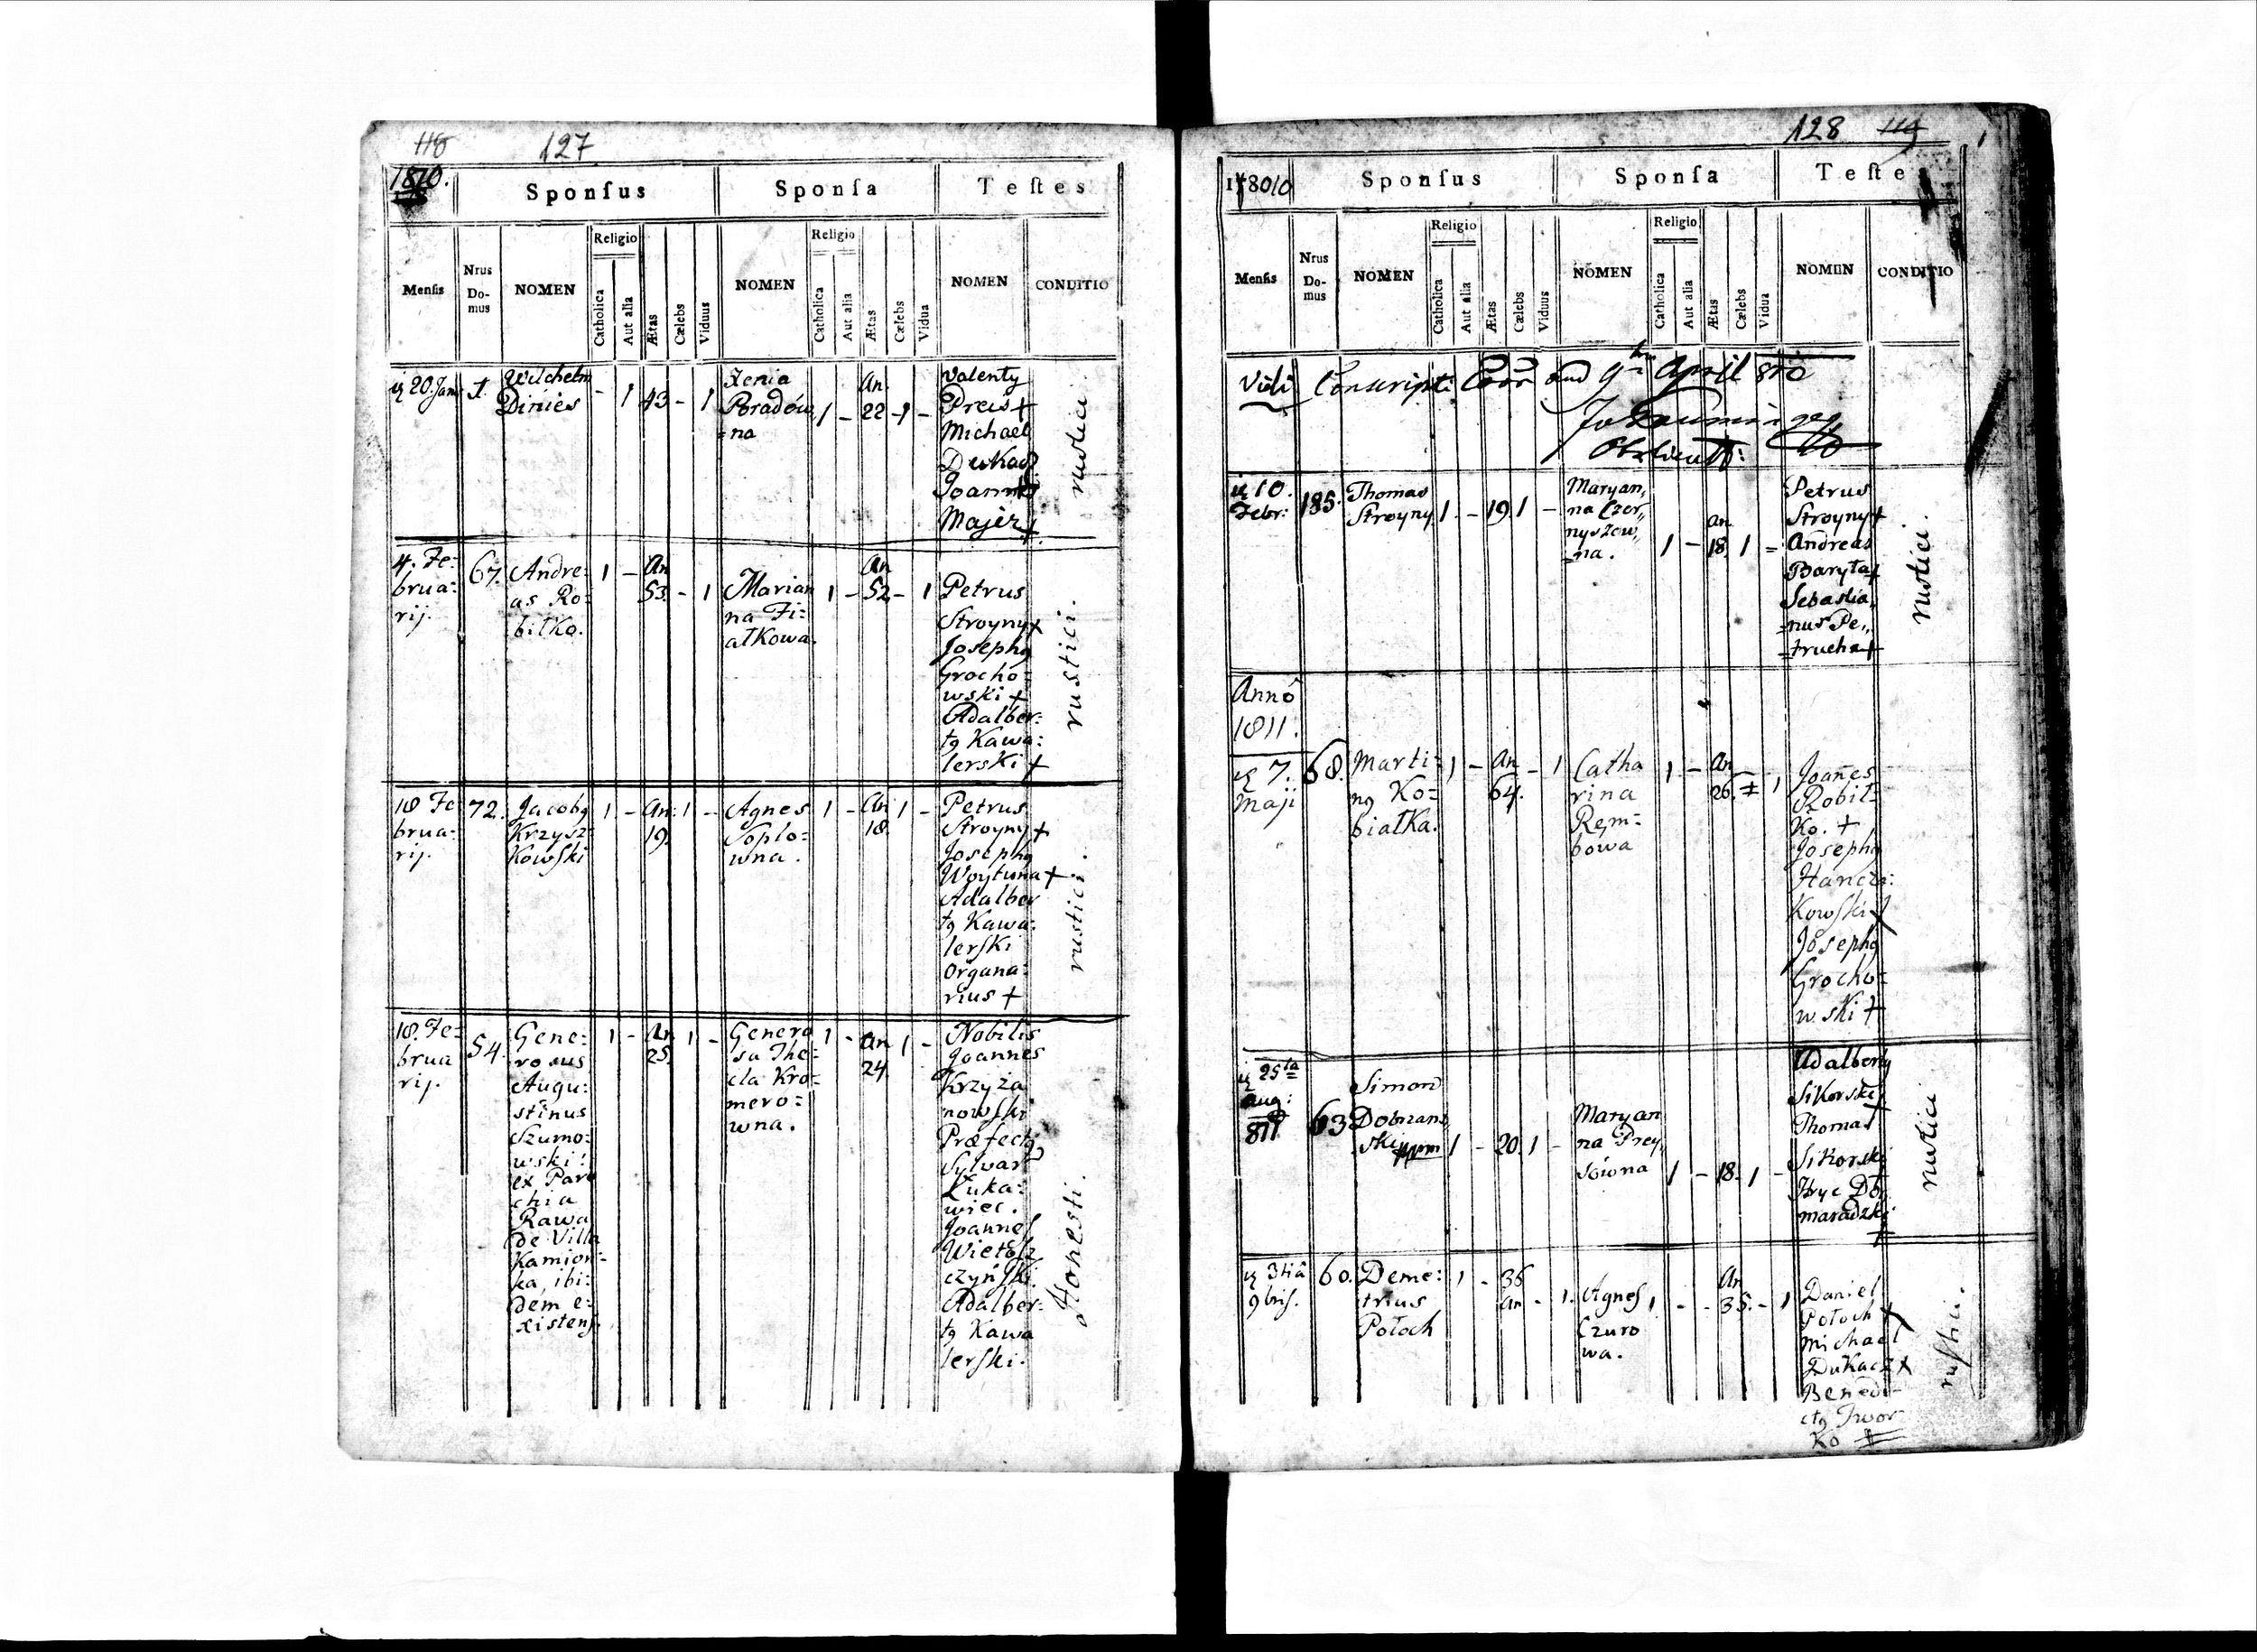 118 127
1810.
Sponſus Sponſa Teſtes
Menſis Nrus Do-mus NOMEN Religio Catholica Aut alia Ætas Cælebs Viduus NOMEN Religio Catholica Aut alia Ætas Cælebs Vidua NOMEN CONDITIO
20. Jan
1.
Wilchelm
Dinies
- 1 43 - 1
Xenia
Poradów
=na
1 - An 22 - 1 -
Valenty
Preis +
Michael
Dukacz
Joannes
Majer +
rustici.
4. Fe:
brua:
rij.
67.
Andre:
as Ro:
biłko.
1 - An 53. - 1
Marian
na Fi:
ałkowa.
1 - An 52 - 1
Petrus
Stroyny +
Josephq
Grocho:
wski +
Adalber:
tq Kawa:
lerski +
rustici.
18 Fe
brua:
rij.
72.
Jacobq
Krzysz:
kowſki
1 - An: 19. 1 -
Agnes
Soplo=
wna.
1 - An 18. 1 -
Petrus
Stroyny +
Josephq
Woytuna +
Adalber
tq Kawa:
lerſki
Organa:
rius +
rustici.
18. Fe=
brua
rij.
54.
Gene:
rosus
Augu:
stinus
Szumo:
wski:
ex Paro
chia
Rawa
de Villa
Kamion:
ka, ibi:
dem e:
xistens.
1 - An 25. 1 -
Genero
sa The:
cla Kro=
mero=
wna.
1 - An 24. 1 -
Nobilis
Joannes
Krzyża
nowſki
Præfectq
Sylvar
Łuka:
wiec.
Joannes
Adalber:
tq Kawa
lerſki.
Honesti.
128 119
18010
Sponſus Sponſa Teſte
Menſis Nrus Do-mus NOMEN Religio Catholica Aut alia Ætas Cælebs Viduus NOMEN Religio Catholica Aut alia Ætas Cælebs Vidua NOMEN CONDITIO
Vidi
April 810
10.
Febr:
185.
Thomas
Stroyny
1. - 19 1 -
Maryan,,
na Czer,,
nyszew,,
=na.
1 - an 18. 1 =
Petrus
Stroyny +
Andreas
Baryła +
Sebastia,,
=nus Pe,,
=trucha +
rustici.
Anno
1811.
7.
Maji
68.
Marti=
nq Ko=
białka.
1 - An 64. - 1
Catha
rina
Rem=
bowa
1 - An 26. 1
Joanes
Robił=
ko. +
Josephq
Hancza:
kowſki +
Josephq
Grocho=
wski +
25ta
aug:
811
63
Simon
Dobrzans
ski
1 - 20. 1 -
Maryan
na Prey,,
sówna
1 - 18. 1 -
Adalbertq
Sikorski
Thomas
Sikorski
Hryc Do
maradzki
+
rustici
3tia
9bris.
60.
Deme:
trius
Połoch
1 - 36 an - 1.
Agnes
Czuro
wa.
1 - An 35. - 1
Daniel
Połoch +
Michael
Dukacz +
Benedi
ctq Iwor
ko
rustici.